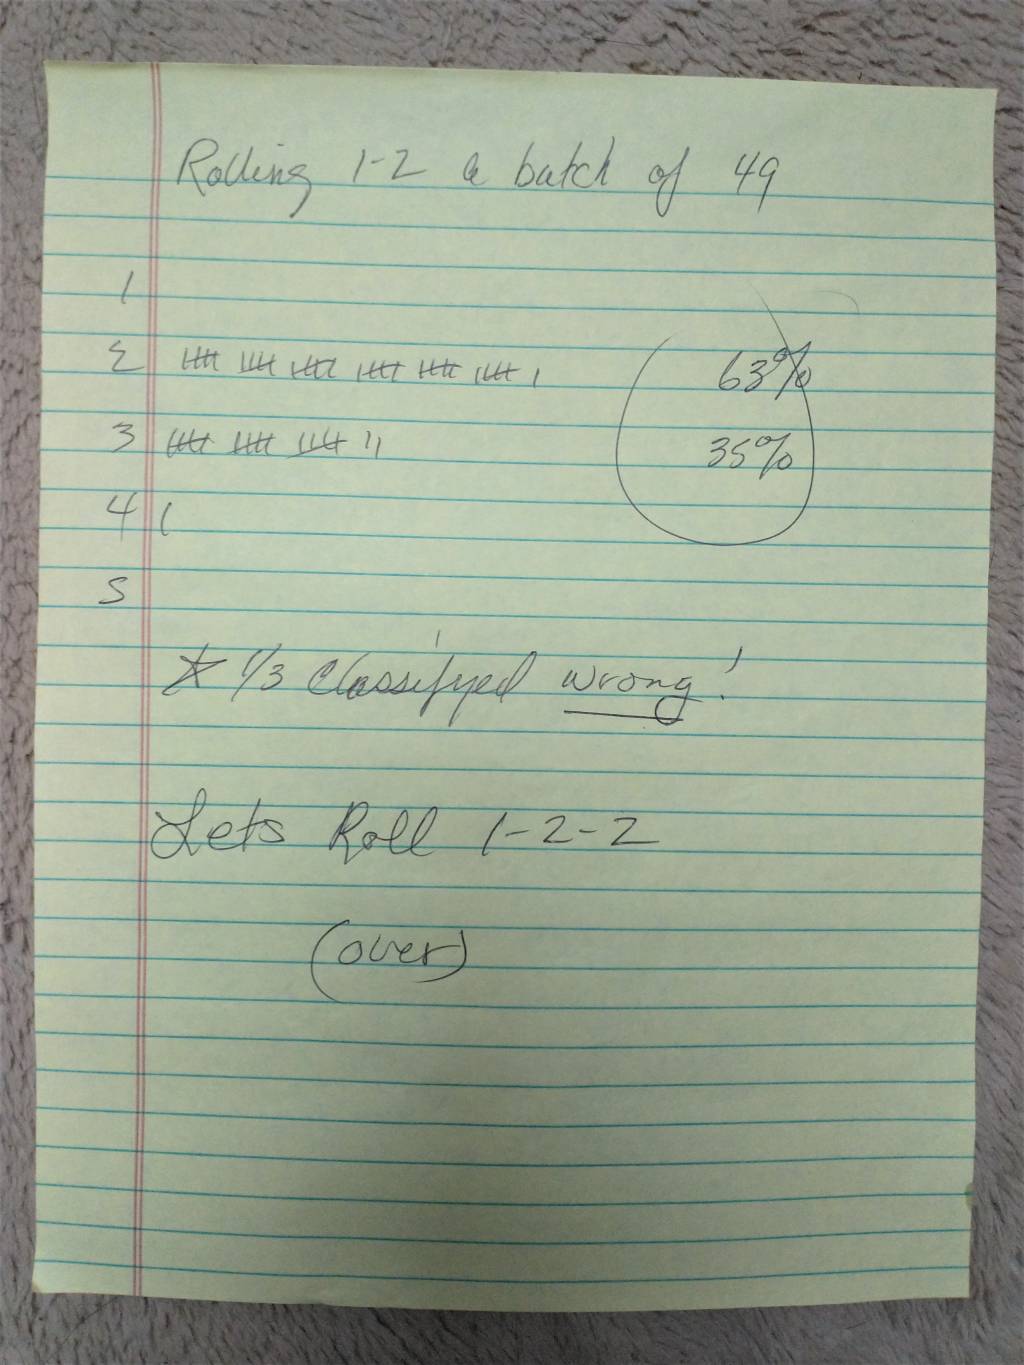 Rolling 1-2 a batch of 49
1
2 卌 卌 卌 卌 卌 卌 |
3 卌 卌 卌 ||
4 |
5
63%
35%
★ 1/3 classifyed wrong!
Lets Roll 1-2-2
(over)